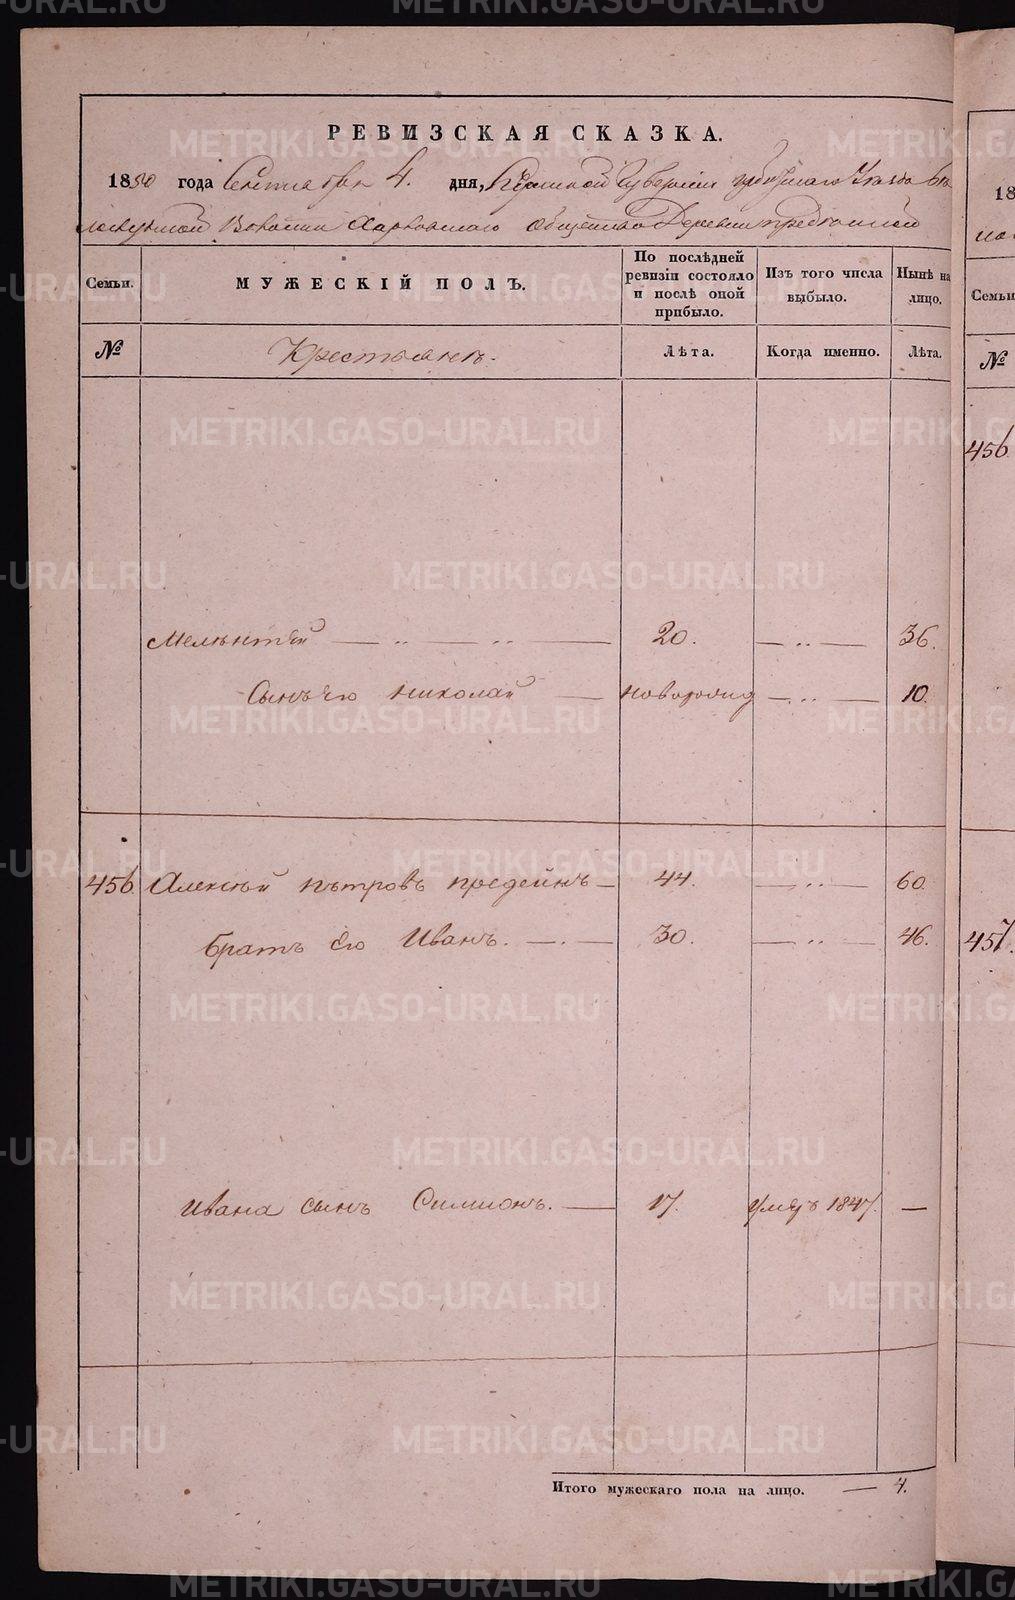 РЕВИЗСКАЯ СКАЗКА.
1850 года Сентября 4. дня, Пермской Губернии Ирбитскаго Уезда Бе
лослудской Волости Харловскаго Общества Деревни
Семьи.
МУЖЕСКІЙ ПОЛЪ.
По послѣдней ревизіи состояло и послѣ оной прибыло.
Изъ того числа выбыло.
Нынѣ на лицо.
№
Крестьянъ.
Лѣта.
Когда именно.
Лѣта.
Мелентій — 20. — „ — 36.
Сынъ его Николай — новорожд — „ — 10.
456 Алексѣй Петровъ Предеинъ — 44. — „ — 60.
Братъ его Иванъ. — 30. — „ — 46.
Ивана сынъ Симионъ. — 17. умеръ 1847. —
Итого мужескаго пола на лицо. — 4.
18
Семьи
№
456.
457.
METRIKI.GASO-URAL.RU